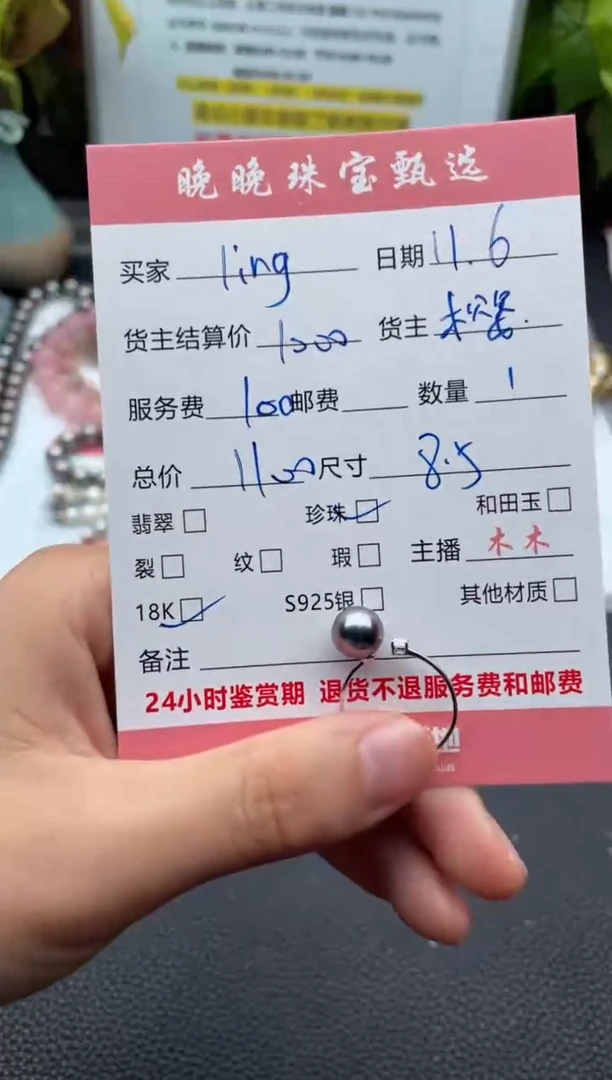 晚晚珠宝甄选
买家 ling 日期 11.6
货主结算价 1000 货主
服务费 100 邮费 数量 1
总价 1100 尺寸 8.5
翡翠 珍珠 和田玉
裂 纹 瑕 主播 木木
18K S925银 其他材质
备注
24小时鉴赏期 退货不退服务费和邮费